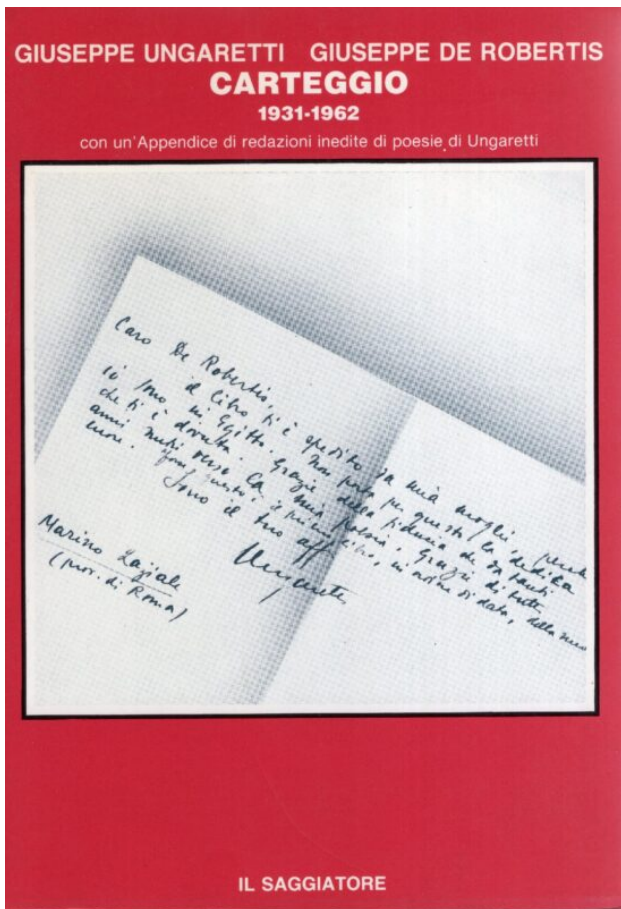 GIUSEPPE UNGARETTI GIUSEPPE DE ROBERTIS
CARTEGGIO
1931-1962
con un'Appendice di redazioni inedite di poesie di Ungaretti
Caro De Robertis,
il libro ti è spedito da mia moglie, perché
io sono in Egitto. Non porta per questo la dedica
che ti è dovuta. Grazie della fiducia che da tanti
anni nutri verso la mia poesia. Grazie di tutto
cuore. questo è il primo libro, in ordine di data, della mia
Sono il tuo aff.
Ungaretti
Marino Laziale
(prov. di Roma)
IL SAGGIATORE